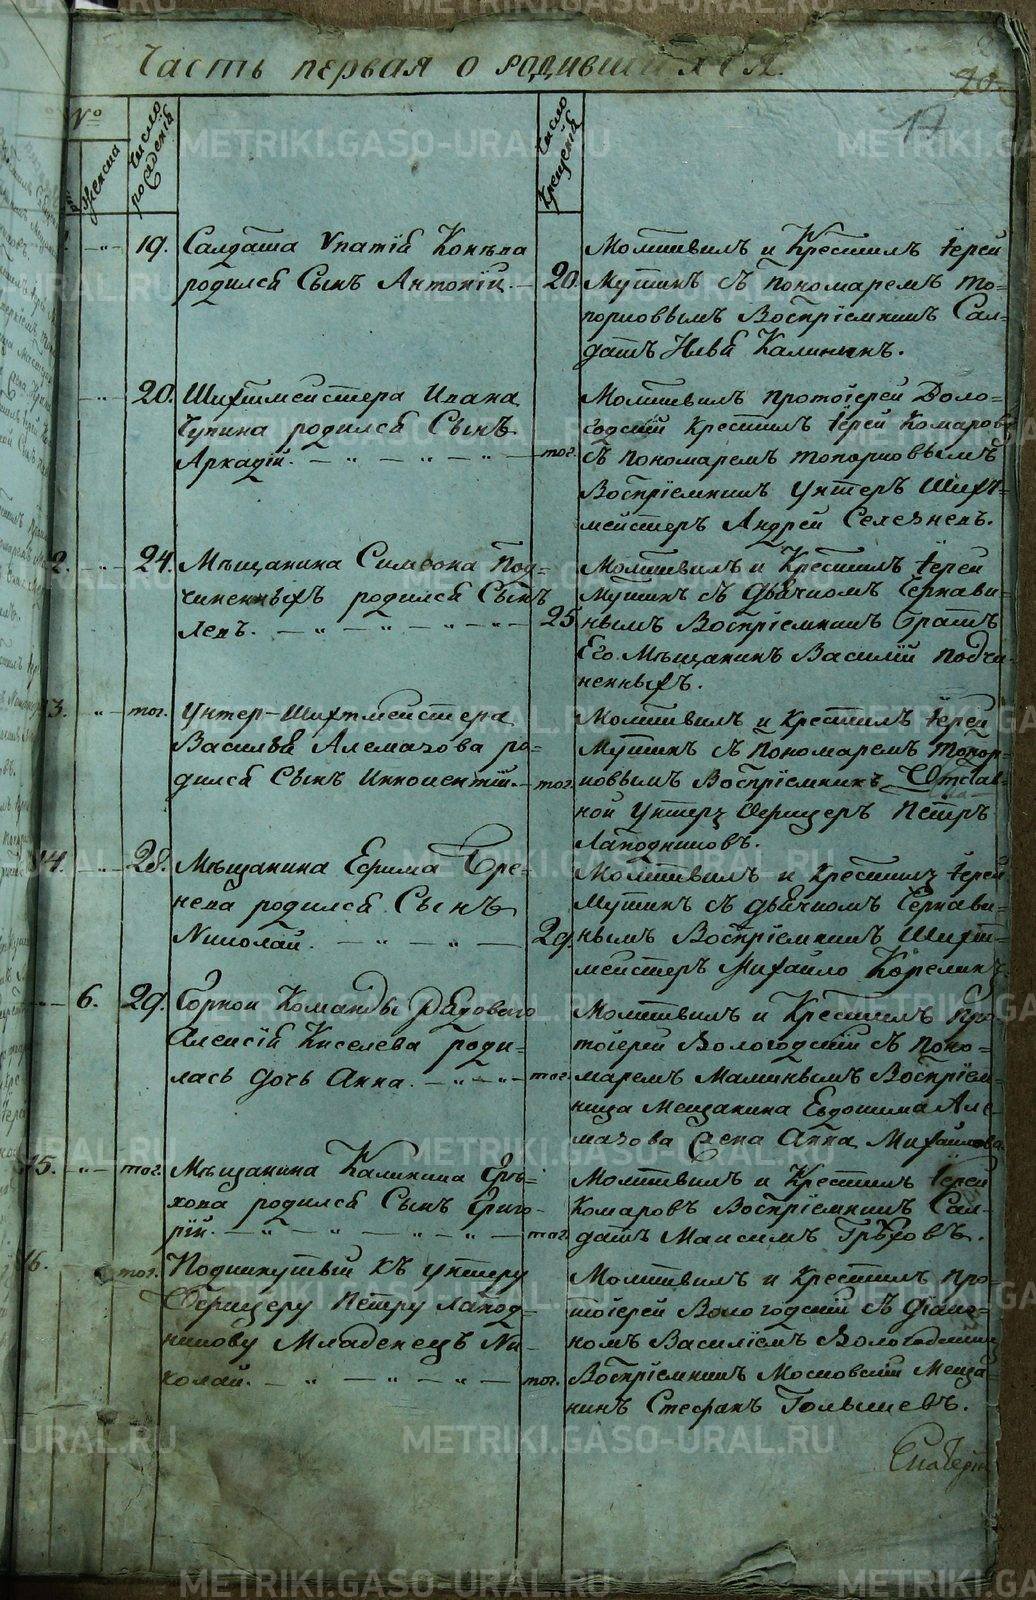 Часть первая о родившихся.
20.
17
№
женска
число рождения
число крещения
19. Салдата Ипатия Конева
родился Сынъ Антоний. —
20.
Молитвилъ и Крестилъ Iерей
Мутинъ съ пономаремъ То-
порковымъ Восприемникъ Сал-
датъ Илья Калининъ.
20. Шихтмейстера Ивана
Чупина родился Сынъ
Аркадiй. — „ — „ — „ —
тог.
Молитвилъ протоiерей Воло-
годскiй крестилъ Iерей Комаровъ
съ пономаремъ топорковымъ
Воспрiемникъ унтеръ Шихт-
мейстеръ Андрей Селезневъ.
2. 24. Мѣщанина Симеона Под-
чиненныхъ родился Сынъ
Левъ. — „ — „ — „ — „ —
25
Молитвилъ и Крестилъ Iерей
Мутинъ съ дьячкомъ Чернави-
нымъ Воспрiемникъ Братъ
Его Мѣщанинъ Василiй подчи-
ненныхъ.
13. „ тог. Унтер-Шихтмейстера
Василья Алемасова ро-
дился Сынъ Иннокентiй. —
тог.
Молитвилъ и Крестилъ Iерей
Мутинъ съ Пономаремъ Топор-
ковымъ Воспрiемникъ Отстав-
ной унтеръ Офицеръ Петръ
Лаподниковъ.
14. 28. Мѣщанина Ефима Бре-
нева родился Сынъ
Николай. — „ — „ —
29.
Молитвилъ и крестилъ Iерей
Мутинъ съ дьячкомъ Чернави-
нымъ Воспрiемникъ Шихт-
мейстеръ Михайло Корелинъ
6. 29. Горной Команды рядоваго
Алексiя Киселева роди-
лась дочь Анна. — „ — „ —
тог.
Молитвилъ и Крестилъ про-
тоiерей Вологодскiй съ поно-
маремъ Маминымъ Воспрiем-
ница Мещанина Евдокима Але-
масова жена Анна Михайлова
15. „ тог. Мѣщанина Калинина Грѣ-
хова родился Сынъ Григо-
рiй. — „ — „ — „ — „ —
тог.
Молитвилъ и Крестилъ Iерей
Комаровъ Воспрiемникъ Сал-
датъ Максимъ Грѣховъ.
16. тог. Подкинутый къ унтеру
Офицеру Петру Лапод-
никову Младенецъ Ни-
колай. — „ — „ — „ —
тог.
Молитвилъ и Крестилъ про-
тоiерей Вологодскiй съ дiако-
номъ Василiемъ Вологодскимъ
Воспрiемникъ Московскiй Меща-
нинъ Стефанъ Голышевъ.
METRIKI.GASO-URAL.RU